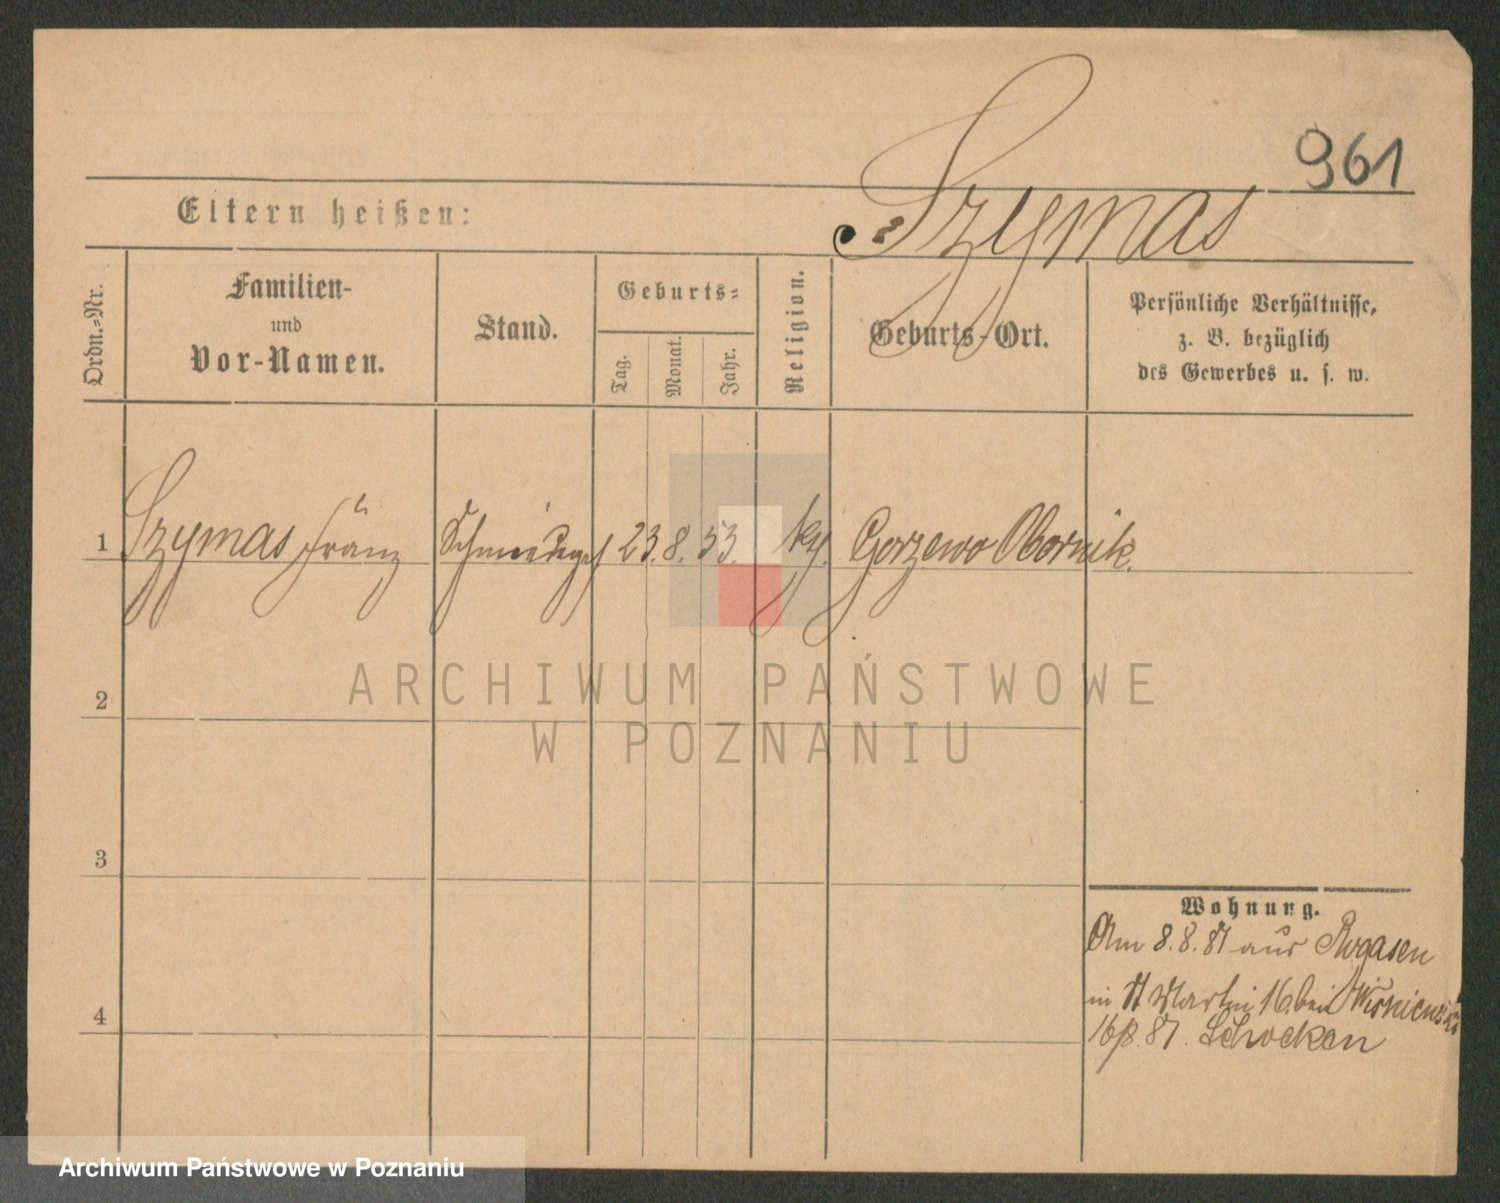 961
Szymas
Eltern heißen:
Ordn.=Nr.
Familien-
und
Vor-Namen.
Stand.
Geburts=
Tag.
Monat.
Jahr.
Religion.
Geburts-Ort.
Persönliche Verhältnisse,
z. B. bezüglich
des Gewerbes u. s. w.
1 Szymas Franz Schmiedeges 23. 8. 53. Gorzewo Obornik.
2
3
4
Wohnung.
Am 8.8.87 aus Rogasen
in St Martin 16. bei Wisniewski
16/8. 87. Schocken
ARCHIWUM PAŃSTWOWE
W POZNANIU
Archiwum Państwowe w Poznaniu